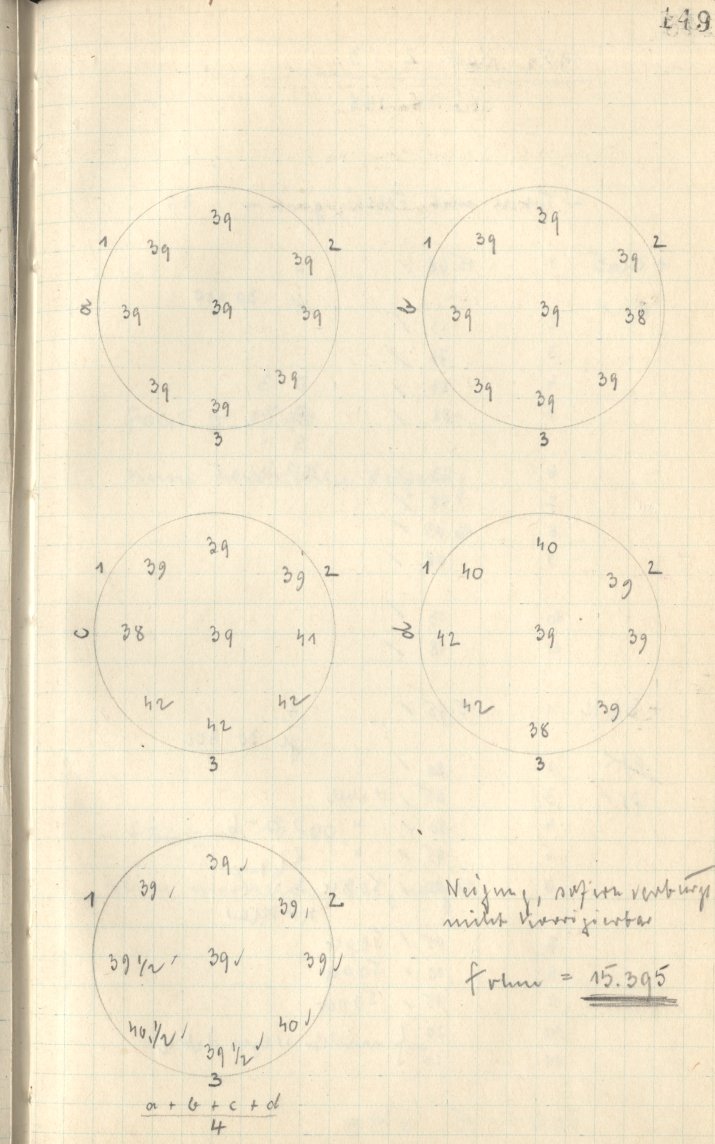 149
39
39 39
1 2
a 39 39 39
39 39
39
3
39
39 39
1 2
b 39 39 38
39 39
39
3
39
39 39
1 2
c 38 39 41
42 42
42
3
40
40 39
1 2
d 42 39 39
42 39
38
3
39
39 39
1 2
39 1/2 39 39
40 1/2 40
39 1/2
3
a + b + c + d
4
Neigung, sofern verbürgt
nicht korrigierbar
f ohm = 15.395